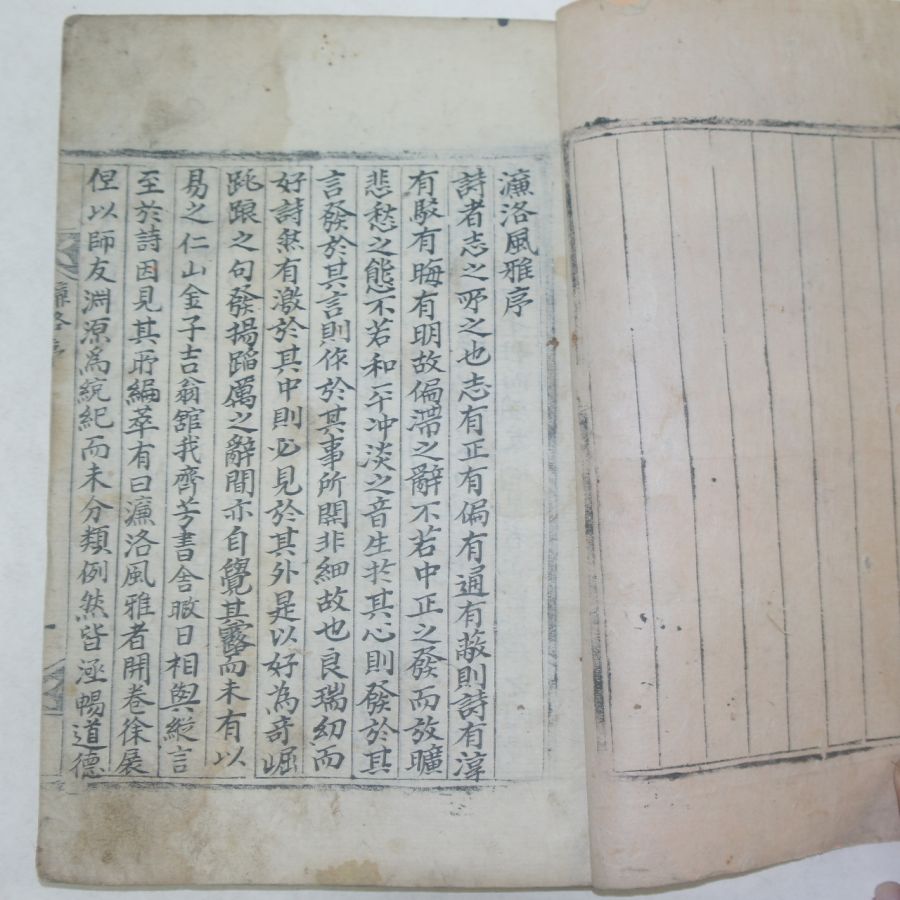 濂洛風雅序
詩者志之所之也志有正有偏有通有蔽則詩有淳
有駁有晦有明故偏滯之辭不若中正之發而放曠
悲愁之態不若和平冲淡之音生於其心則發於其
言發於其言則作於其事所關非細故也良瑞幼而
好詩然有激於其中則必見於其外是以好為奇崛
跳踉之句發揚蹈厲之辭間亦自覺其露而未有以
易之仁山金子吉翁舘我齊芳書舎暇日相與縱言
至於詩因見其所編萃有曰濂洛風雅者開卷徐展
但以師友淵源爲統紀而未分類例然皆涵暢道德
濂洛序